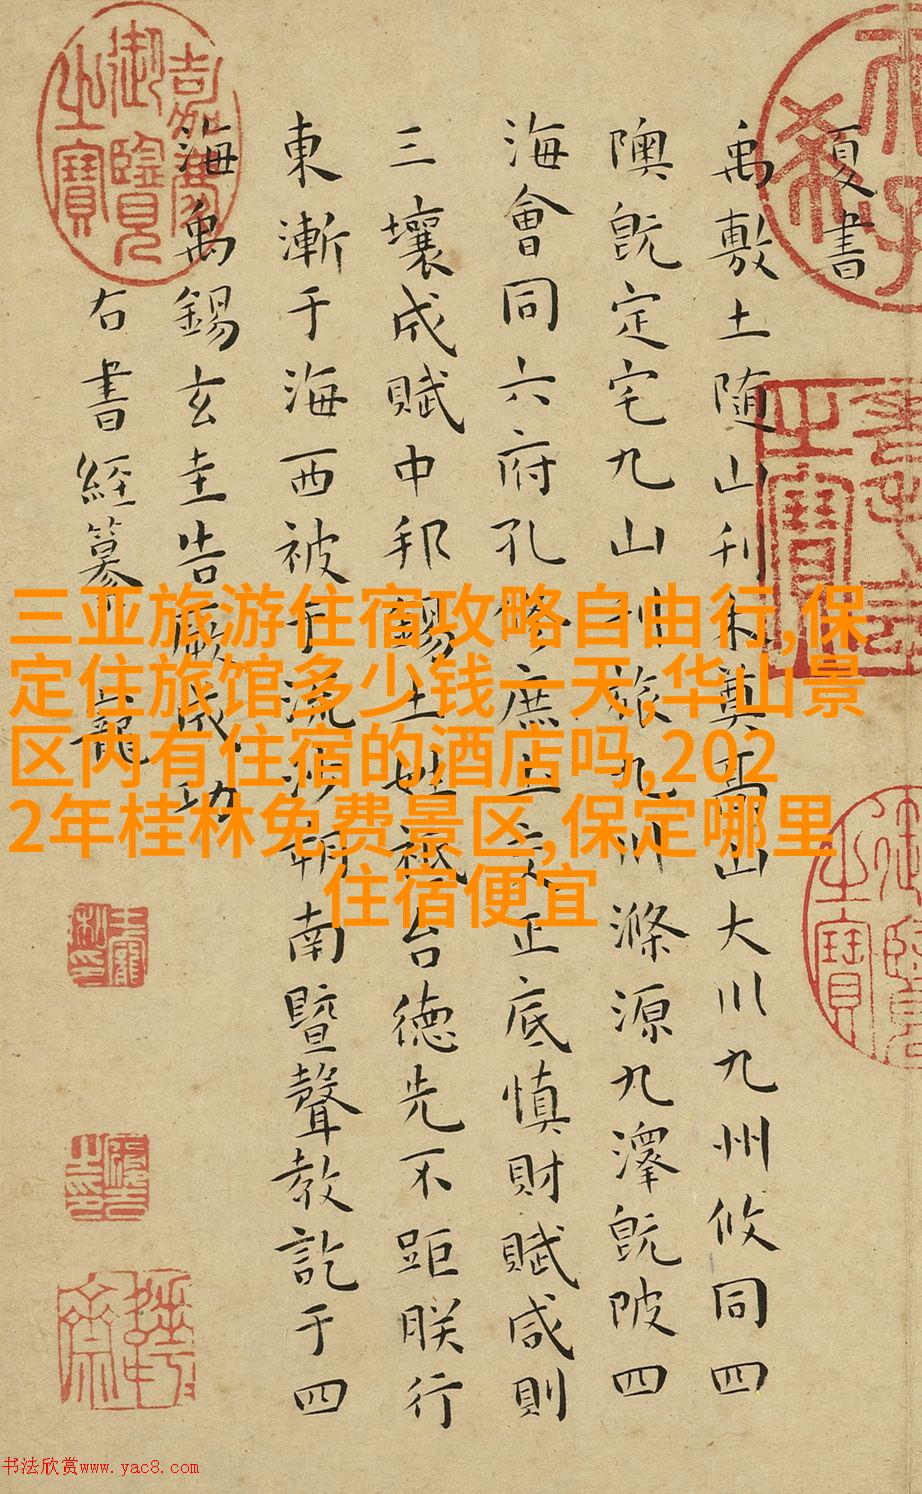 夏書
禹敷土随山刋木奠高山大川九州攸同四
隩旣定宅九山刋旅九川滌源九澤旣陂四
海會同六府孔修庶土交正底慎財賦咸則
三壤成賦中邦錫土姓祗台德先不距朕行
東漸于海西被于流沙朔南暨聲教訖于四
海禹錫玄圭告厥成功
右書經篹 寵
嘉慶御覽之寶
三亚旅游住宿攻略自由行,保
定住旅馆多少钱一天,华山景
区内有住宿的酒店吗,202
2年桂林免费景区,保定哪里
住宿便宜
书法欣赏www.yac8.com